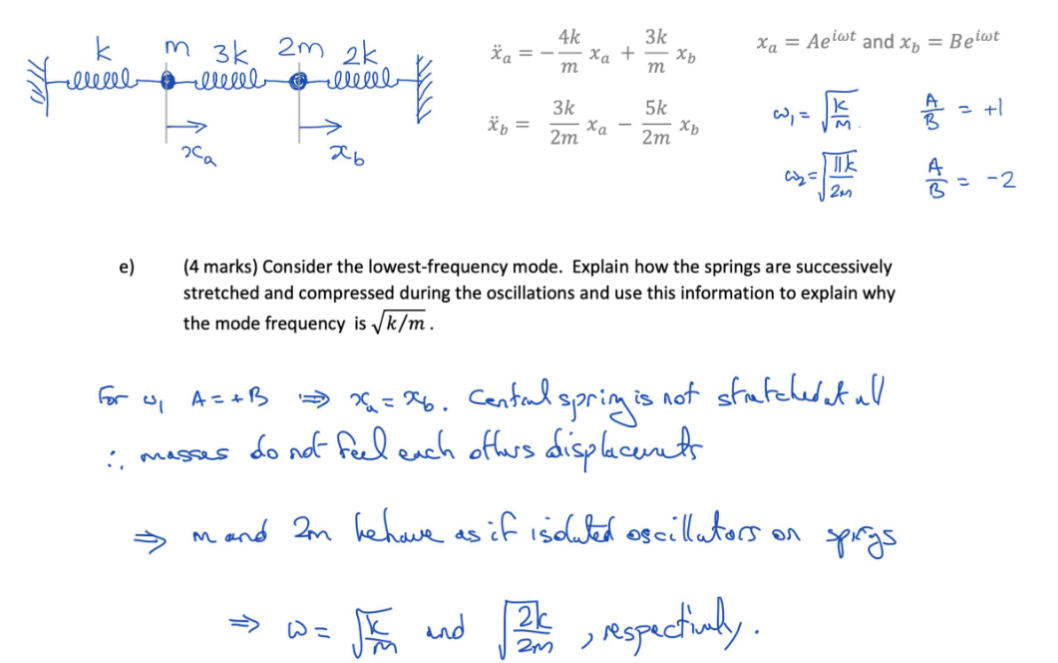 k m 3k 2m 2k
ẍₐ = −4k/m xₐ + 3k/m x_b
xₐ = Ae^{iωt} and x_b = Be^{iωt}
ẍ_b = 3k/2m xₐ − 5k/2m x_b
ω₁ = √(k/m) A/B = +1
xₐ x_b
ω₂ = √(11k/2m) A/B = −2
e) (4 marks) Consider the lowest-frequency mode. Explain how the springs are successively
stretched and compressed during the oscillations and use this information to explain why
the mode frequency is √k/m .
For ω₁ A = +B ⇒ xₐ = x_b. Central spring is not stretched at all
∴ masses do not feel each others displacements
⇒ m and 2m behave as if isolated oscillators on springs
⇒ ω = √(k/m) and √(2k/2m) , respectively.